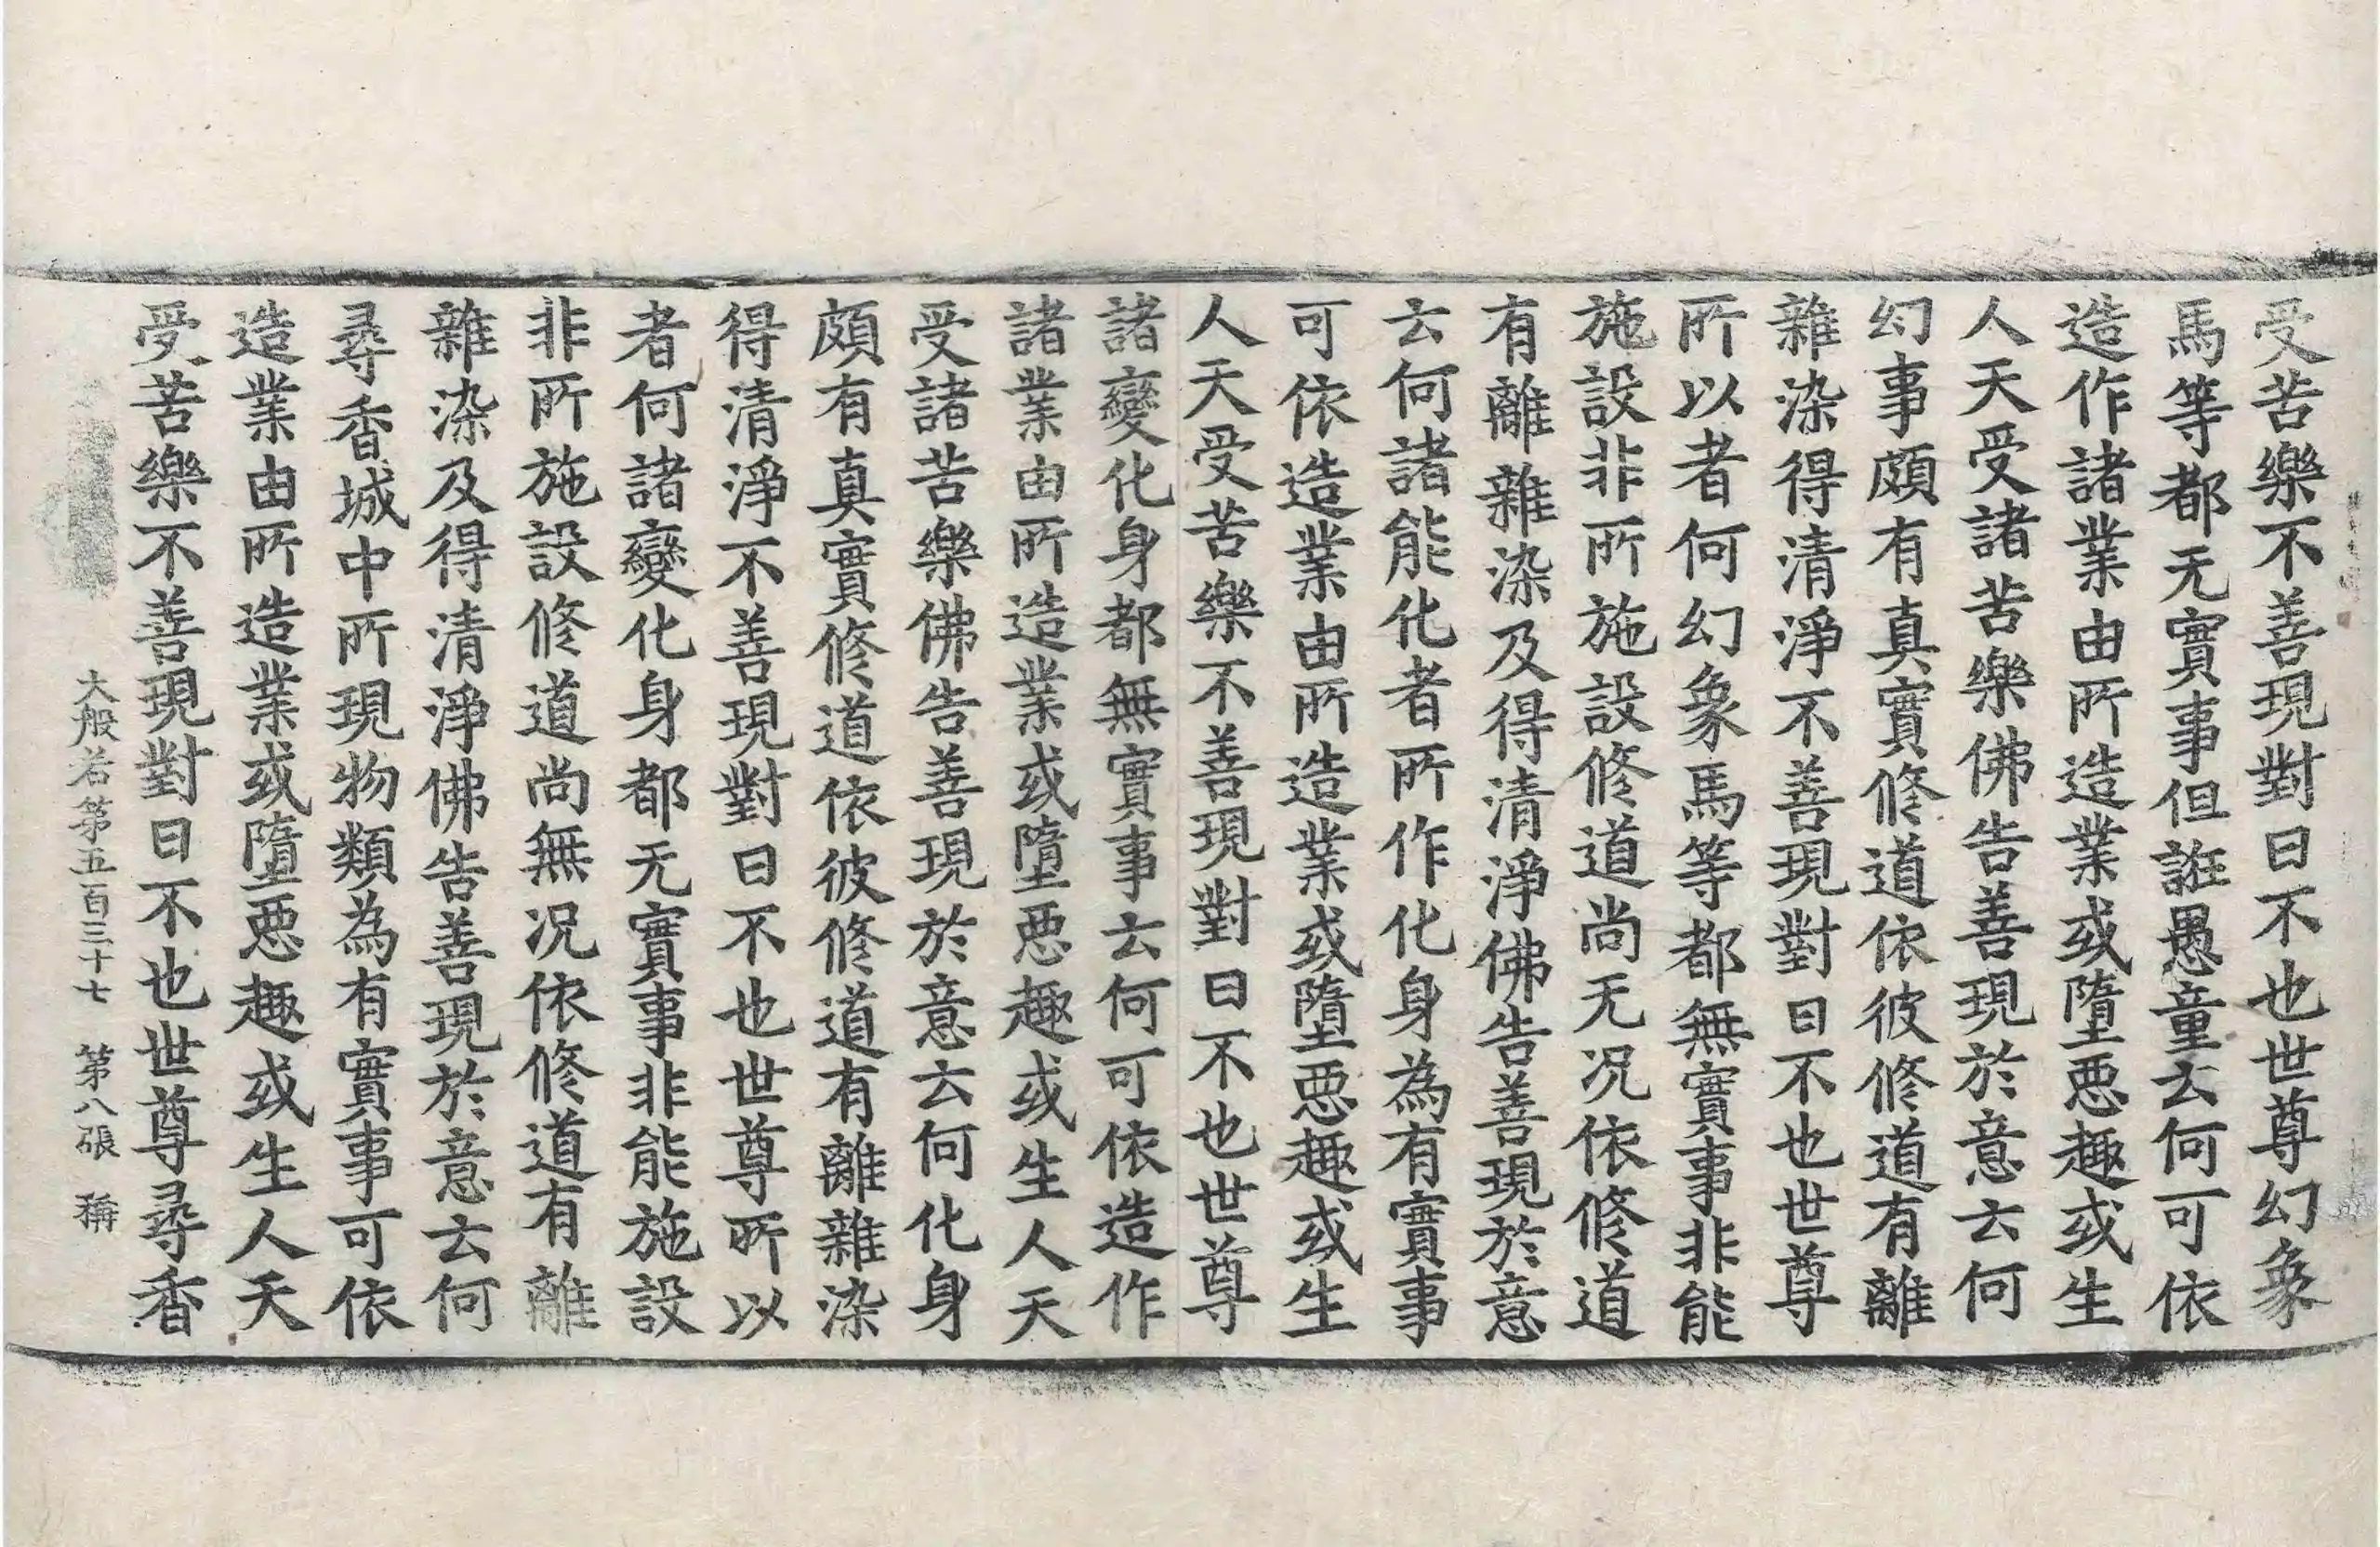 受苦樂不善現對曰不也世尊幻象
馬等都无實事但誑愚童云何可依
造作諸業由所造業或墮惡趣或生
人天受諸苦樂佛告善現於意云何
幻事頗有真實修道依彼修道有離
雜染得清淨不善現對曰不也世尊
所以者何幻象馬等都無實事非能
施設非所施設修道尚无况依修道
有離雜染及得清淨佛告善現於意
云何諸能化者所作化身為有實事
可依造業由所造業或墮惡趣或生
人天受苦樂不善現對曰不也世尊
諸變化身都無實事云何可依造作
諸業由所造業或墮惡趣或生人天
受諸苦樂佛告善現於意云何化身
頗有真實修道依彼修道有離雜染
得清淨不善現對曰不也世尊所以
者何諸變化身都无實事非能施設
非所施設修道尚無况依修道有離
雜染及得清淨佛告善現於意云何
尋香城中所現物類為有實事可依
造業由所造業或墮惡趣或生人天
受苦樂不善現對曰不也世尊尋香
大般若第五百三十七 第八張 稱